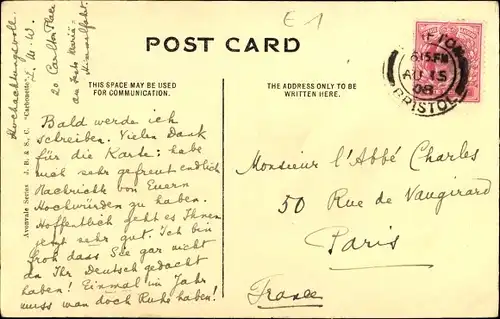 E 1
POST CARD
THIS SPACE MAY BE USED
FOR COMMUNICATION.
THE ADDRESS ONLY TO BE
WRITTEN HERE.
CLIFTON
6.15 PM
AU 15
08
BRISTOL
20 Carlton Place
am Feste Mariä-
Himmelfahrt.
Bald werde ich
schreiben. Vielen Dank
für die Karte: habe
mich sehr gefreut endlich
Nachricht von Euern
Hochwürden zu haben.
Hoffentlich geht es Ihnen
jetzt sehr gut. Ich bin
froh dass See gar nicht
an Ihr Deutsch gedacht
haben! Einmal im Jahr
muss man doch Ruhe haben!
Hochachtungsvoll.
L. M. W.
Avonvale Series J. B. & S., C. "Carbonette"
Monsieur l'Abbé Charles
50 Rue de Vaugirard
Paris
France